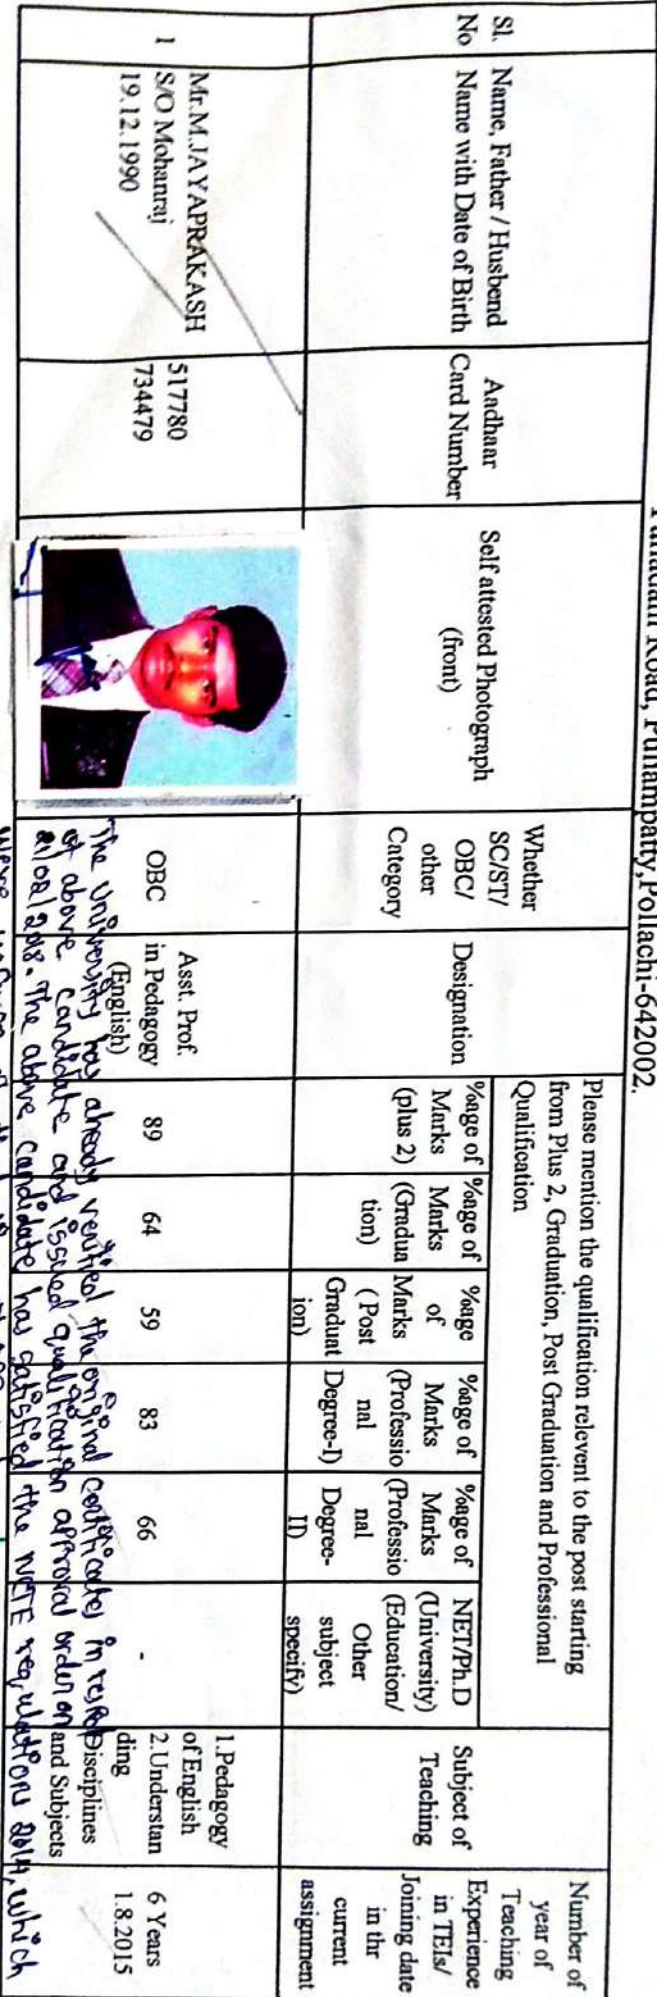 Road, Punampatty,Pollachi-642002.
Sl. No
Name, Father / Husbend
Name with Date of Birth
Aadhaar
Card Number
Self attested Photograph
(front)
Whether
SC/ST/
OBC/
other
Category
Designation
Please mention the qualification relevent to the post starting
from Plus 2, Graduation, Post Graduation and Professional
Qualification
%age of
Marks
(plus 2)
%age of
Marks
(Gradua
tion)
%age
of
Marks
( Post
Graduat
ion)
%age of
Marks
(Professio
nal
Degree-I)
%age of
Marks
(Professio
nal
Degree-
II)
NET/Ph.D
(University)
(Education/
Other
subject
specify)
Subject of
Teaching
Number of
year of
Teaching
Experience
in TEIs/
Joining date
in thr
current
assignment
1
Mr.M.JAYAPRAKASH
S/O Mohanraj
19.12.1990
517780
734479
OBC
Asst. Prof.
in Pedagogy
(English)
89
64
59
83
66
-
1.Pedagogy
of English
2.Understan
ding
Disciplines
and Subjects
6 Years
1.8.2015
The University has already verified the original certificates in
of above candidate and issued qualification approval order on
21/02/2018. The above candidate has satisfied the NCTE regulations 2014, which
were